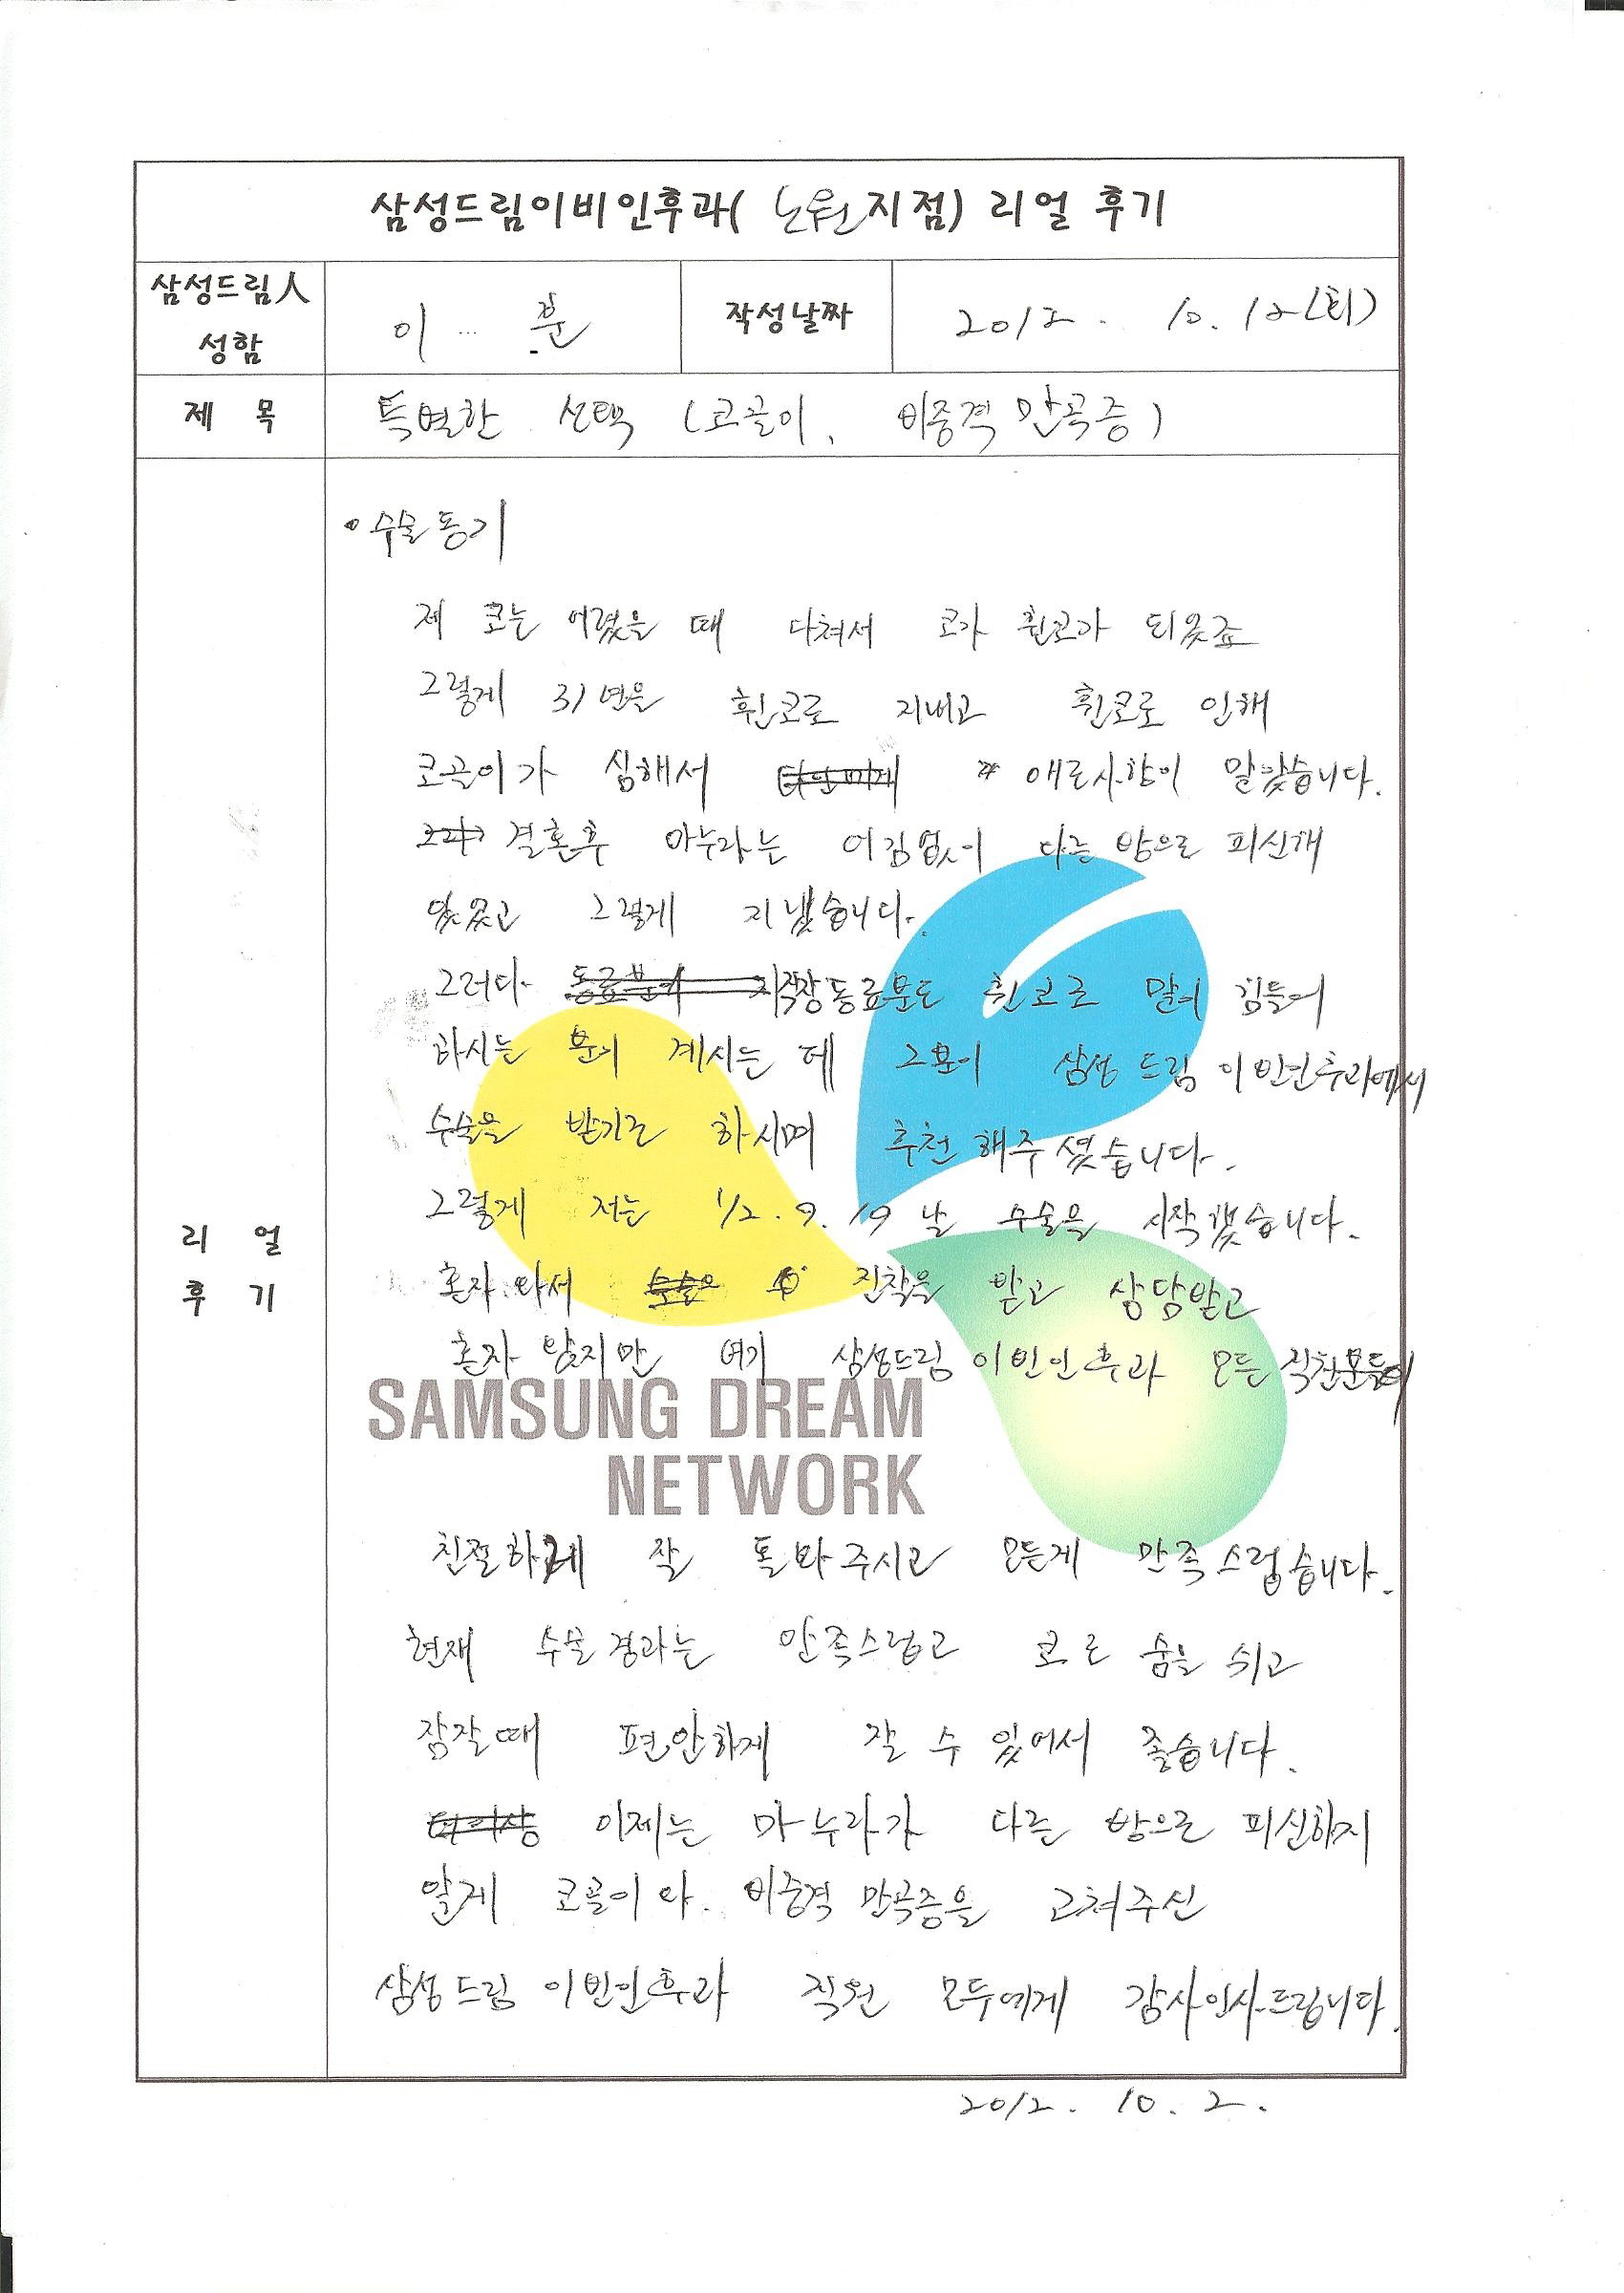 삼성드림이비인후과( 노원지점) 리얼 후기
삼성드림人 성함
이 훈
작성날짜
2012. 10. 12
제 목
특별한 선택 (코골이, 비중격 만곡증)
리 얼
후 기
• 수술 동기
제 코는 어렸을 때 다쳐서 코가 휜코가 되웃죠
그렇게 31년을 휜코로 지내고 휜코로 인해
코골이가 심해서 애로사항이 많았습니다.
결혼후 마누라는 어김없이 다른 방으로 피신개
그렇게 지냈습니다.
그러다 직장동료분도 휜코로 많이 힘들어
하시는 분이 계시는 데 그분이 삼성 드림 이빈인후과에서
수술을 받기로 하시며 추천 해주셨습니다.
그렇게 저는 12. 9. 19 날 수술을 시작했습니다.
혼자 와서 진찰을 받고 상담받고
혼자 왔지만 여기 삼성드림 이빈인후과 모든
SAMSUNG DREAM
NETWORK
친절하게 잘 돌봐주시고 모든게 만족스럽습니다.
현재 수술경과는 만족스럽고 코로 숨을 쉬고
잠잘때 편안하게 잘 수 있어서 좋습니다.
이제는 마누라가 다른 방으로 피신하지
않게 코골이와 비중격 만곡증을 고쳐주신
삼성드림 이빈인후과 직원 모두에게 감사인사드립니다.
2012. 10. 2.